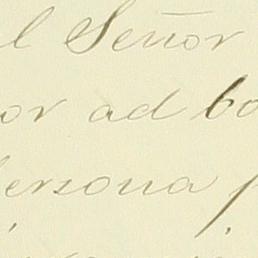 l Señor
or ad bo
persona p